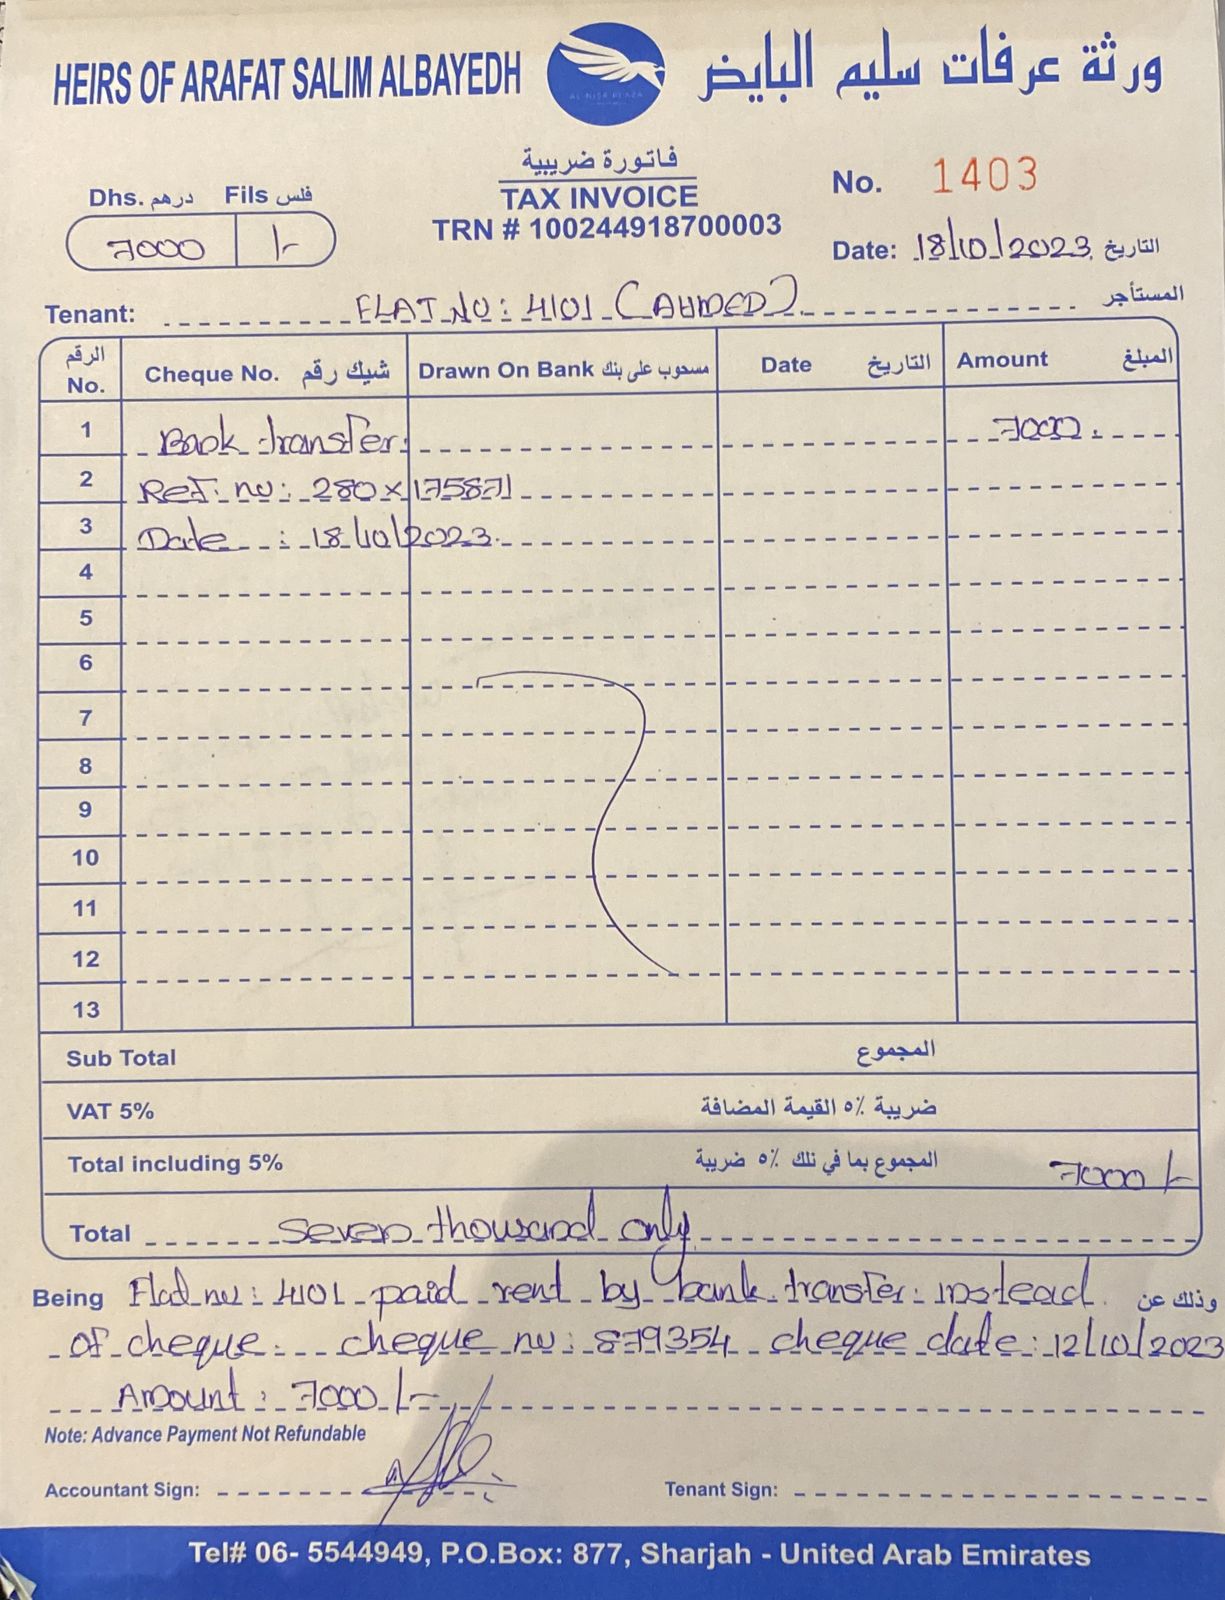 HEIRS OF ARAFAT SALIM ALBAYEDH
AL NISR PLAZA
ورثة عرفات سليم البايض
فاتورة ضريبية
TAX INVOICE
TRN # 100244918700003
Dhs. درهم Fils فلس
7000 /-
No. 1403
Date: 18/10/2023 التاريخ
Tenant: FLAT NO: 4101 (AHMED) المستأجر
الرقم No. Cheque No. شيك رقم Drawn On Bank مسحوب على بنك Date التاريخ Amount المبلغ
1 Bank transfer 7000
2 Ref: no: 280x175871
3 Date : 18/10/2023
4
5
6
7
8
9
10
11
12
13
Sub Total المجموع
VAT 5% ضريبة ٥٪ القيمة المضافة
Total including 5% المجموع بما في تلك ٥٪ ضريبة 7000/-
Total seven thousand only
Being Flat no: 4101 paid rent by bank transfer instead وذلك عن
of cheque. cheque no: 879354 cheque date: 12/10/2023
Amount: 7000/-
Note: Advance Payment Not Refundable
Accountant Sign: Tenant Sign:
Tel# 06- 5544949, P.O.Box: 877, Sharjah - United Arab Emirates